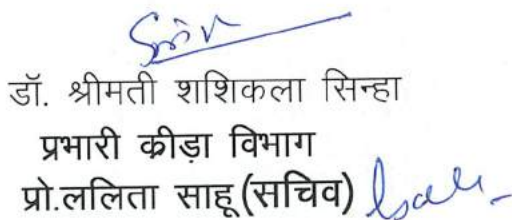 डॉ. श्रीमती शशिकला सिन्हा
प्रभारी क्रीड़ा विभाग
प्रो.ललिता साहू(सचिव)